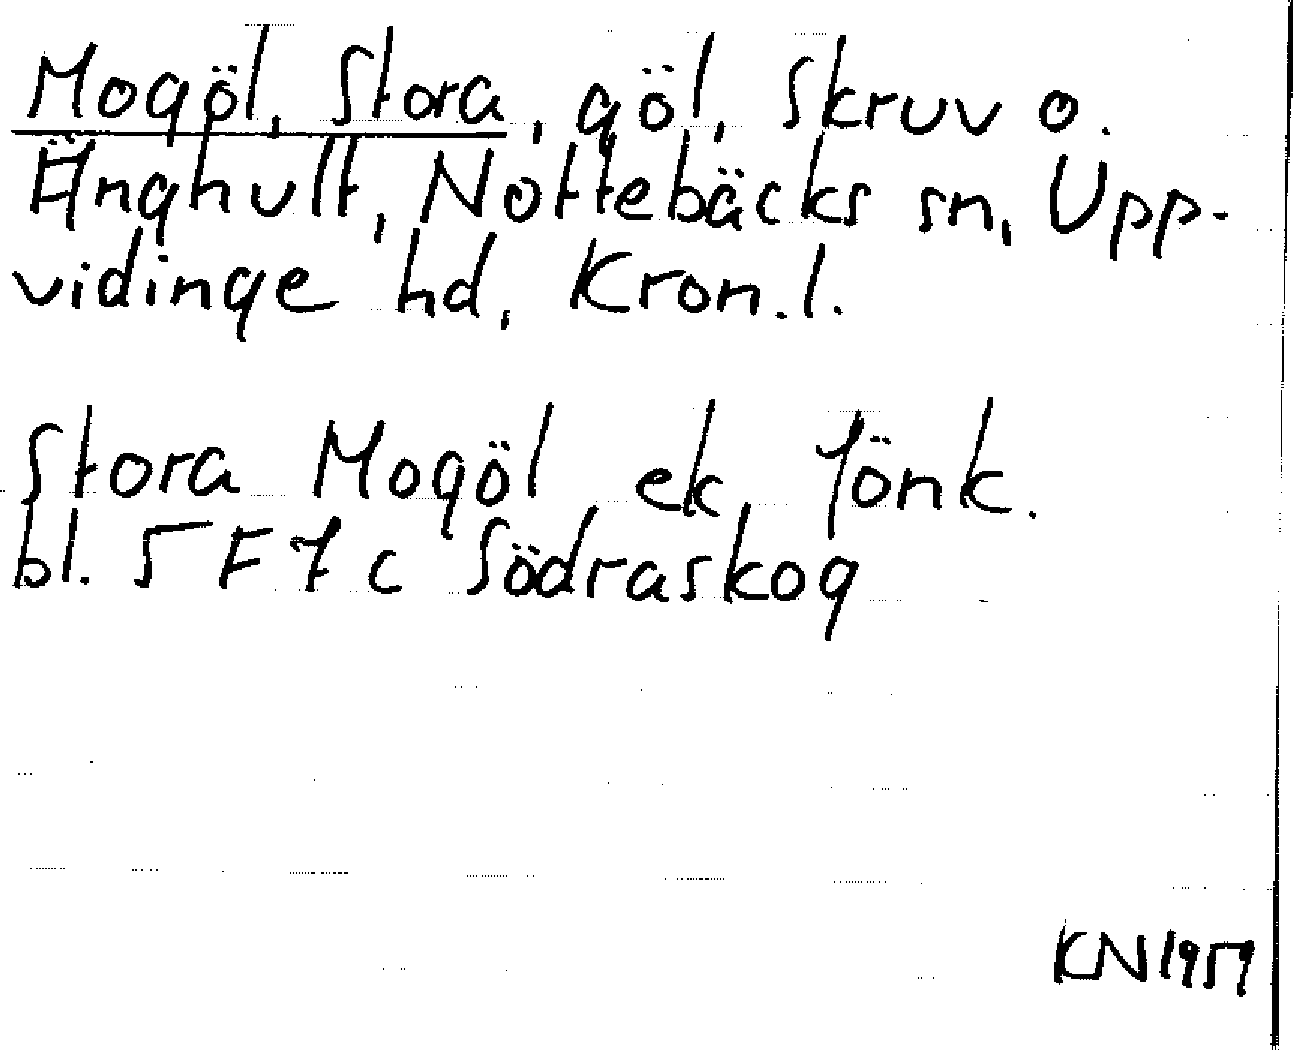 Mogöl, Stora, göl, Skruv o.
Änghult, Nottebäcks sn, Upp-
vidinge hd, Kron. l.
Stora Mogöl ek Jönk.
bl. 5 F 7 c Södraskog
KN 1959